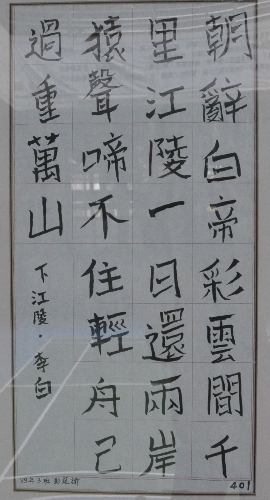 朝辭白帝彩雲間千
里江陵一日還兩岸
猿聲啼不住輕舟已
過重萬山
下江陵·李白
401